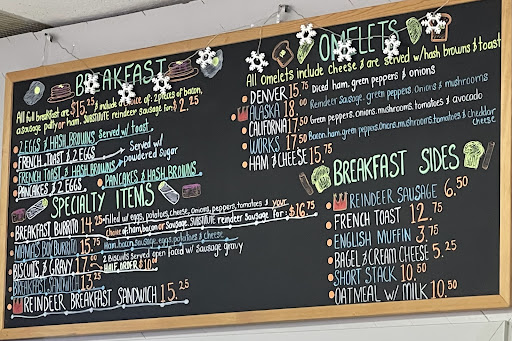 BREAKFAST
All full breakfast are $15.25 & include a choice of: 2 pieces of bacon,
a sausage patty or ham. SUBSTITUTE reindeer sausage for $2.25
2 EGGS & HASH BROWNS Served w/ toast
FRENCH TOAST & 2 EGGS Served w/
FRENCH TOAST & HASH BROWNS powdered sugar
PANCAKES & 2 EGGS PANCAKES & HASH BROWNS
SPECIALTY ITEMS
BREAKFAST BURRITO 14.25 Filled w/ eggs, potatoes, cheese, onions, peppers, tomatoes & your
choice of: ham, bacon or sausage. SUBSTITUTE reindeer sausage for: $16.75
MAMA'S BOY BURRITO 15.75 Ham, bacon, sausage, eggs, potatoes & cheese
BISCUITS & GRAVY 17.00 2 Biscuits served open faced w/ sausage gravy
HALF ORDER $10.00
BREAKFAST SANDWICH 13.25
REINDEER BREAKFAST SANDWICH 15.25
OMELETS
All omelets include cheese & are served w/ hash browns & toast
DENVER 15.75 Diced ham, green peppers & onions
ALASKA 18.00 Reindeer Sausage, green peppers, onions & mushrooms
CALIFORNIA 17.50 Green peppers, onions, mushrooms, tomatoes & avocado
WORKS 17.50 Bacon, ham, green peppers, onions, mushrooms, tomatoes & cheddar
cheese
HAM & CHEESE 15.75
BREAKFAST SIDES
REINDEER SAUSAGE 6.50
FRENCH TOAST 12.75
ENGLISH MUFFIN 3.75
BAGEL & CREAM CHEESE 5.25
SHORT STACK 10.50
OATMEAL w/ MILK 10.50